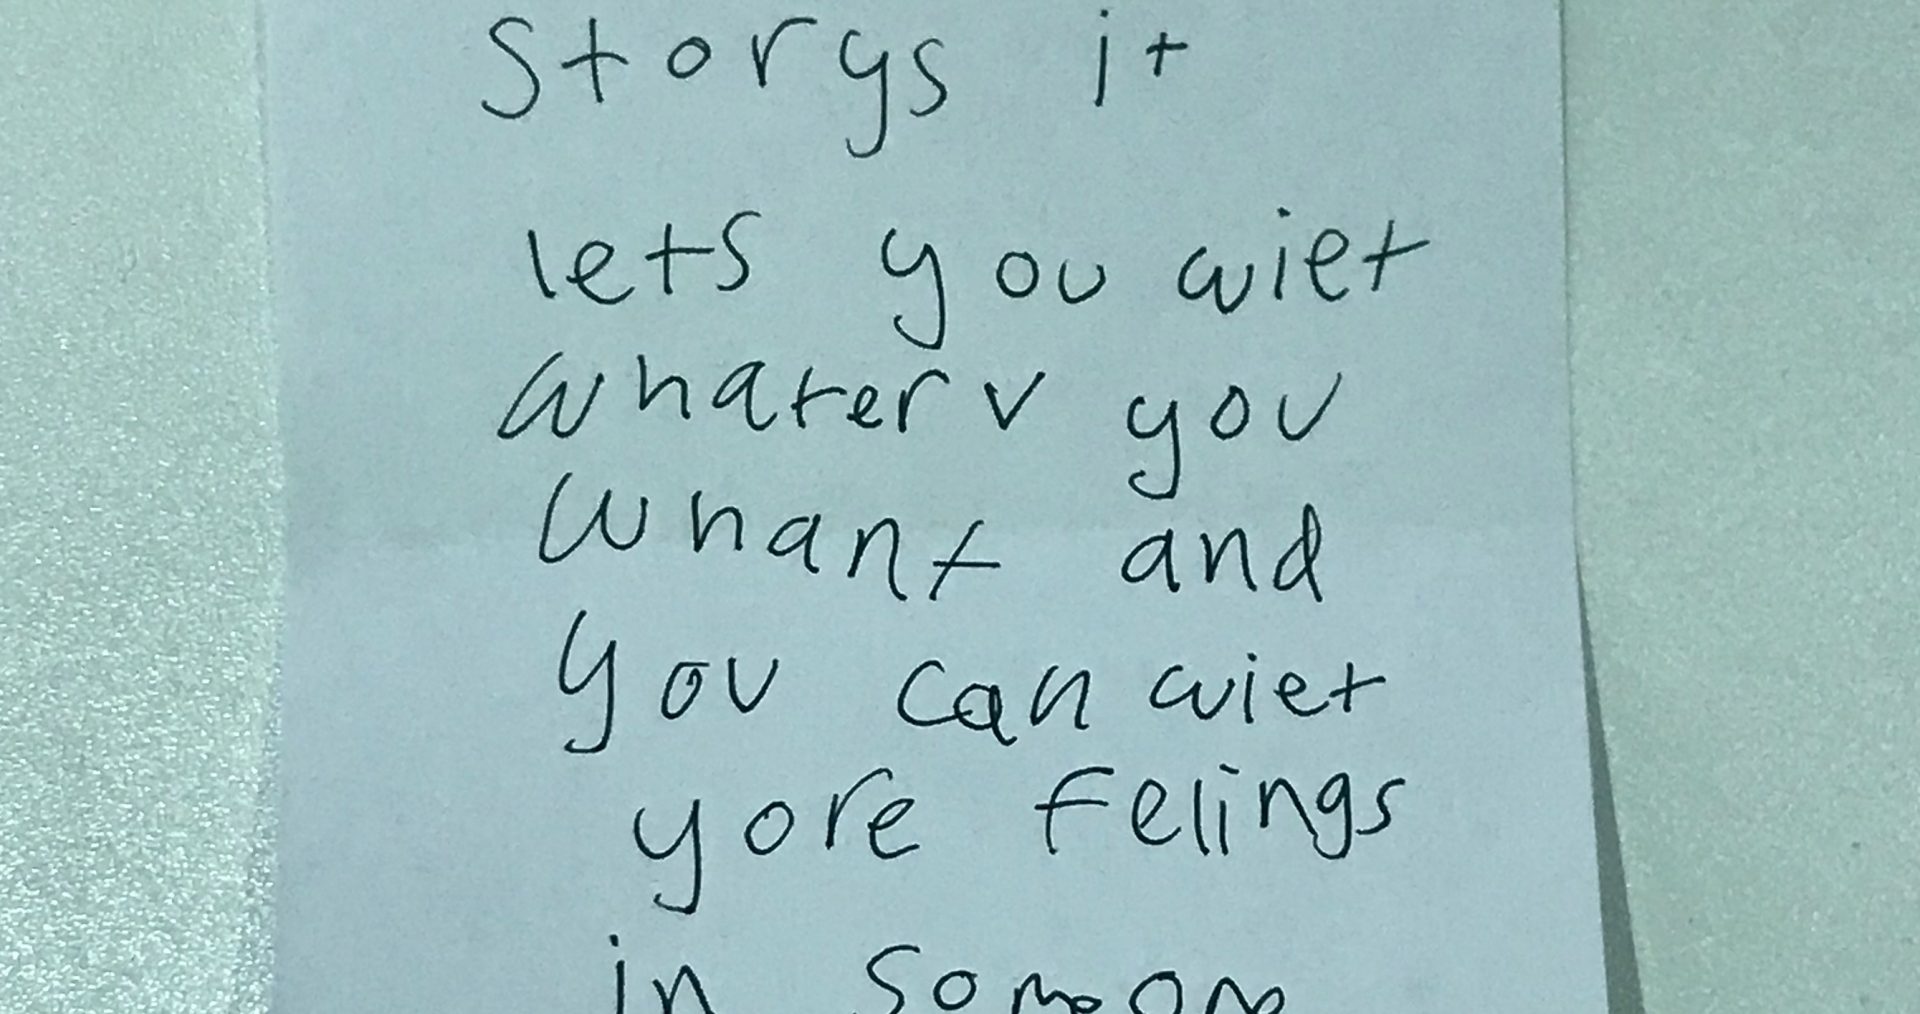 storys it
lets you wiet
whaterv you
whant and
you can wiet
yore felings
in someone